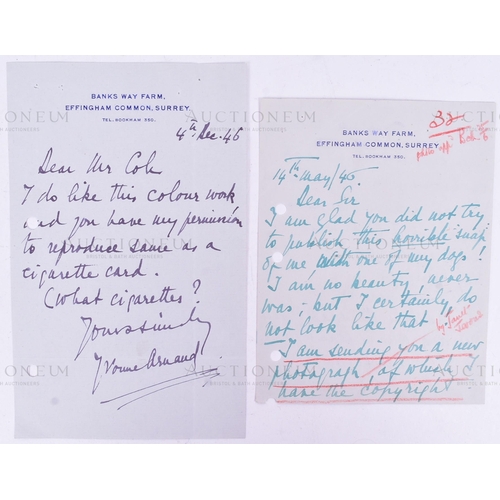 BANKS WAY FARM,
EFFINGHAM COMMON, SURREY.
TEL. BOOKHAM 350.
4th Dec. 46
Dear Mr Cole
I do like this colour work
and you have my permission
to reproduce same as a
cigarette card.
(What cigarettes?
Yours sincerely
Yvonne Arnaud
32
BANKS WAY FARM,
EFFINGHAM COMMON, SURREY.
TEL. BOOKHAM 350.
14th May/46
Dear Sir
I am glad you did not try
to publish this horrible snap
of me with one of my dogs!
I am no beauty, never
was; but I certainly do
not look like that!
I am sending you a new
photograph of which I
have the copyright